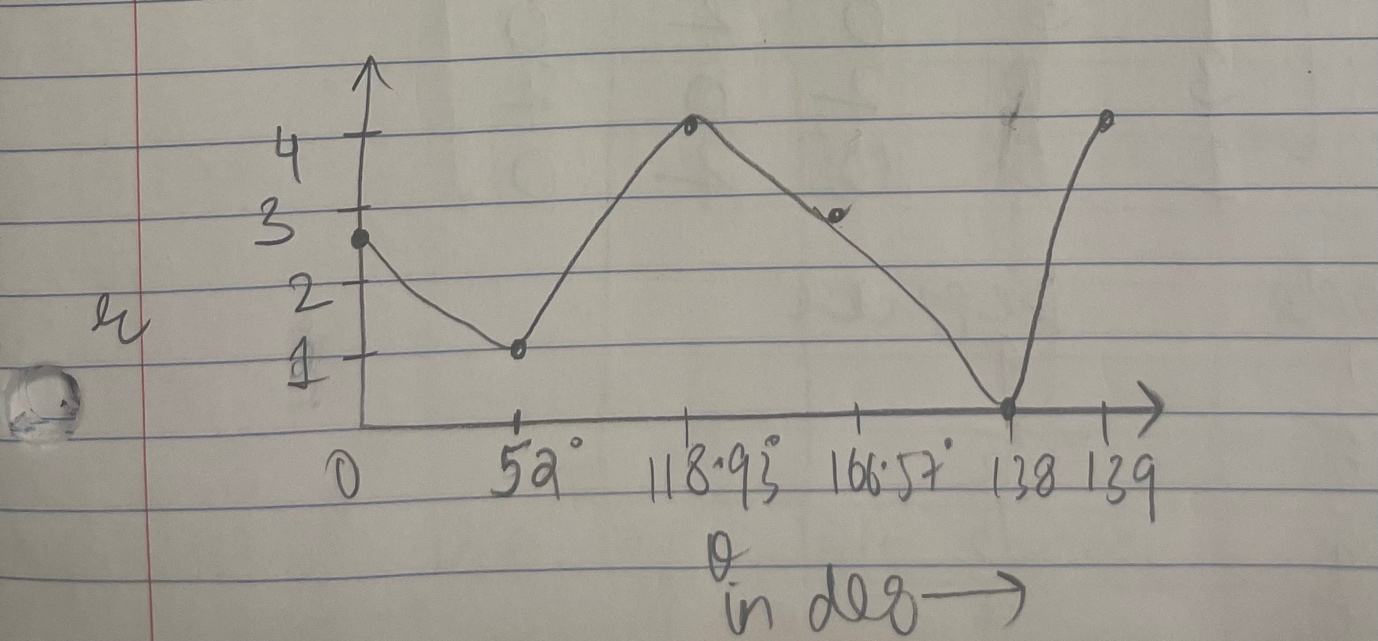 4
3
2
r
1
0 52° 118.93° 166.57° 138 139
θ
in deg →